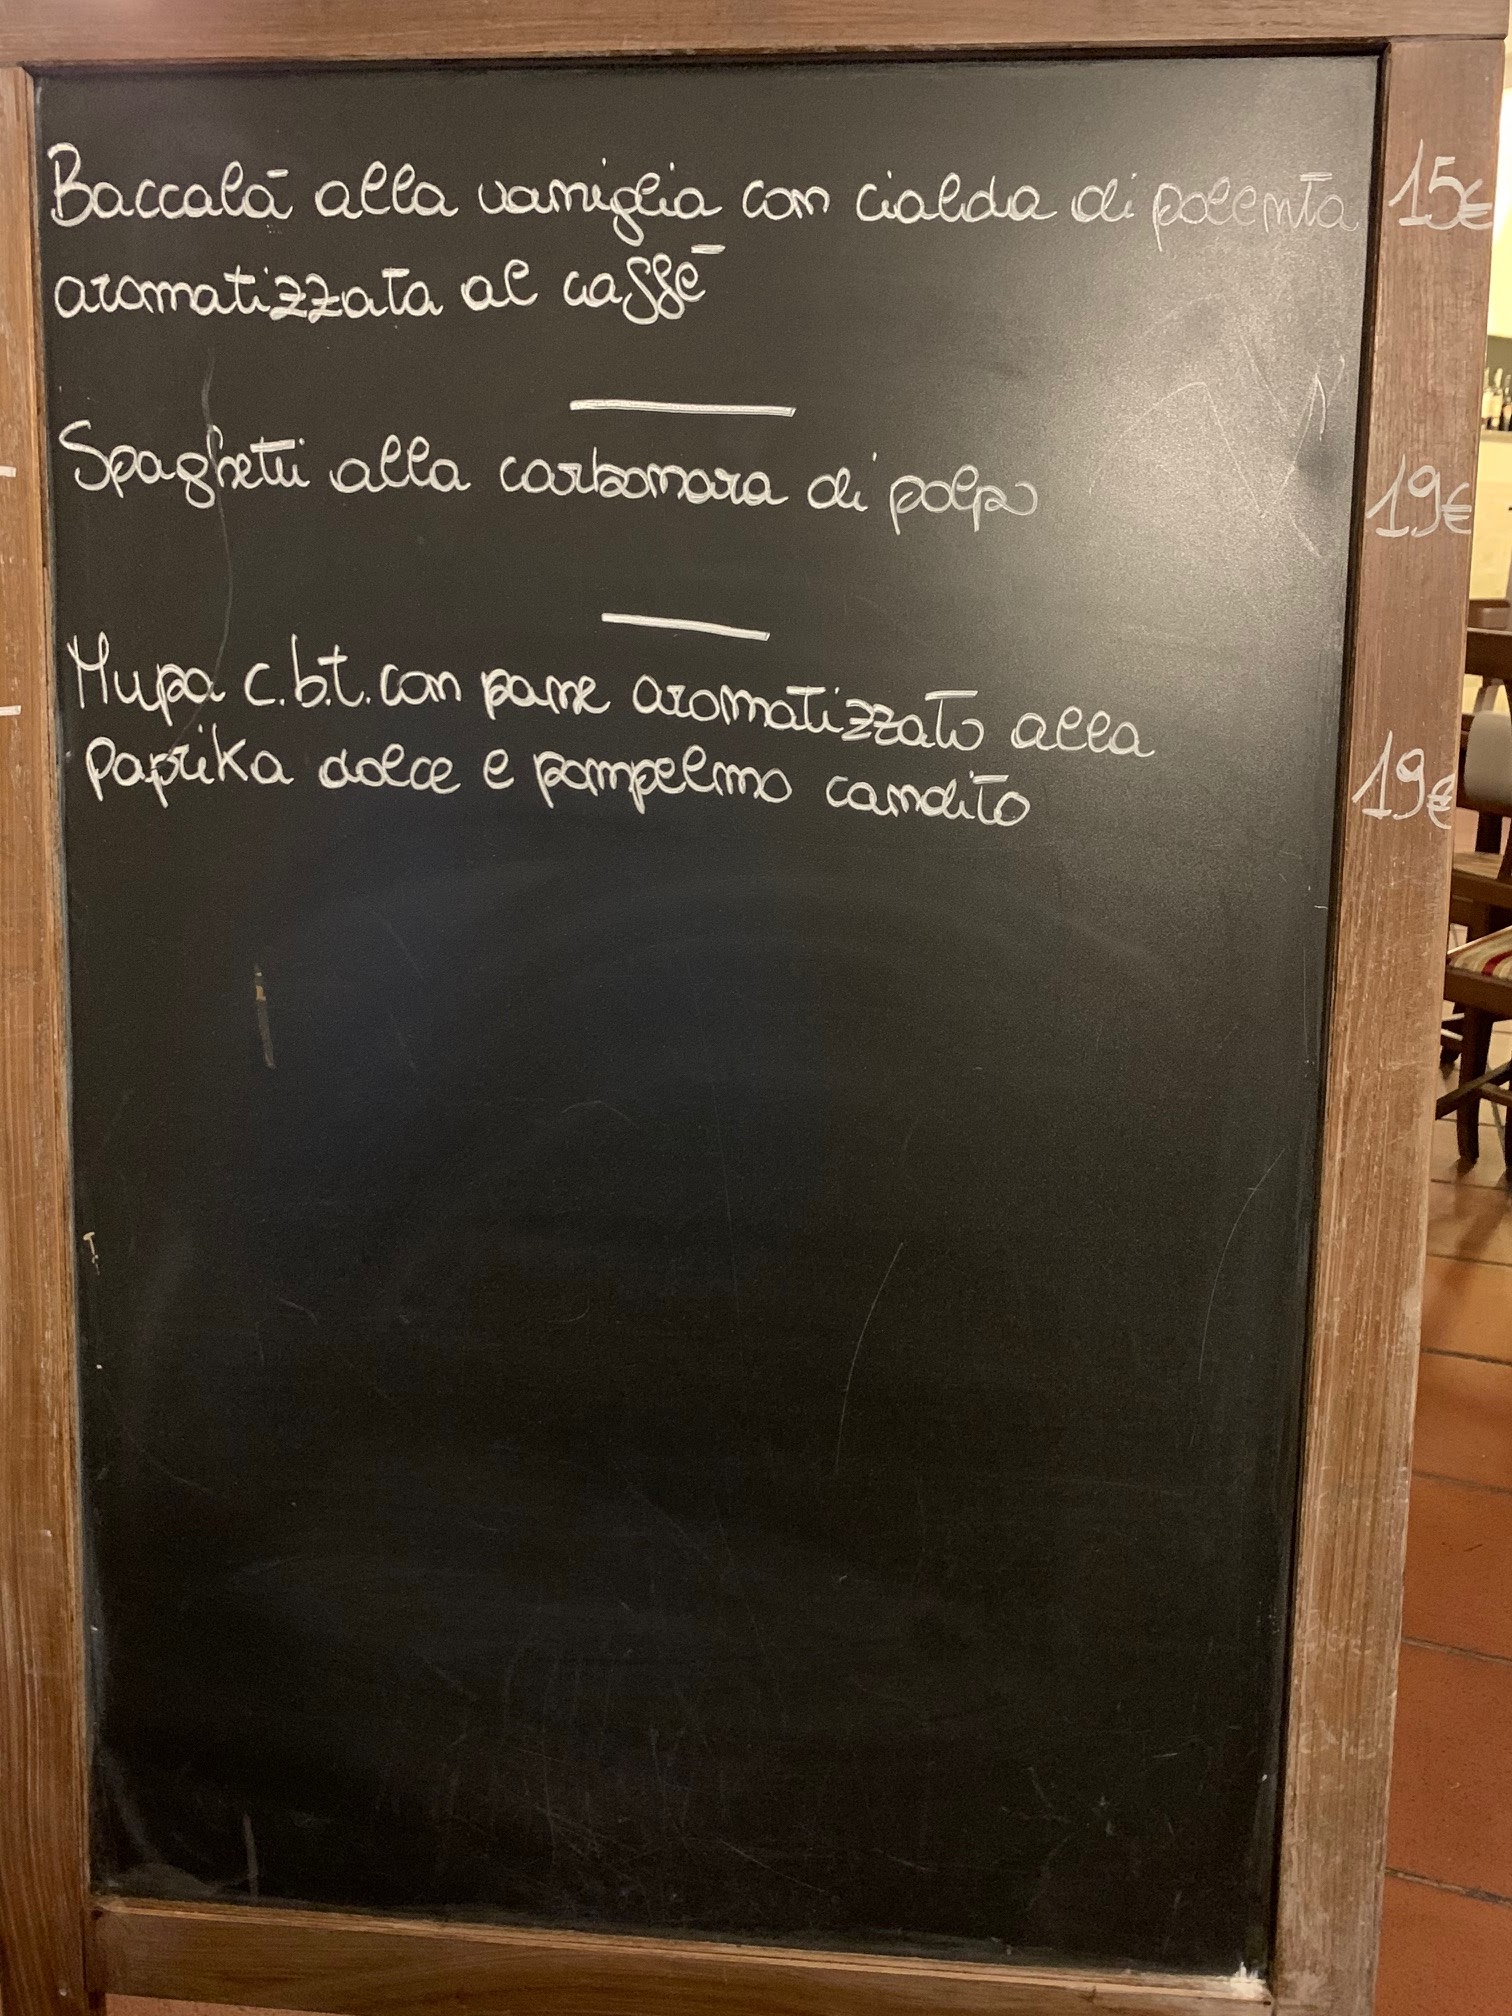 Baccalà alla vaniglia con cialda di polenta 15€
aromatizzata al caffè
Spaghetti alla carbonara di polpo 19€
Mupa c.b.t. con pane aromatizzato alla
paprika dolce e pompelmo candito 19€